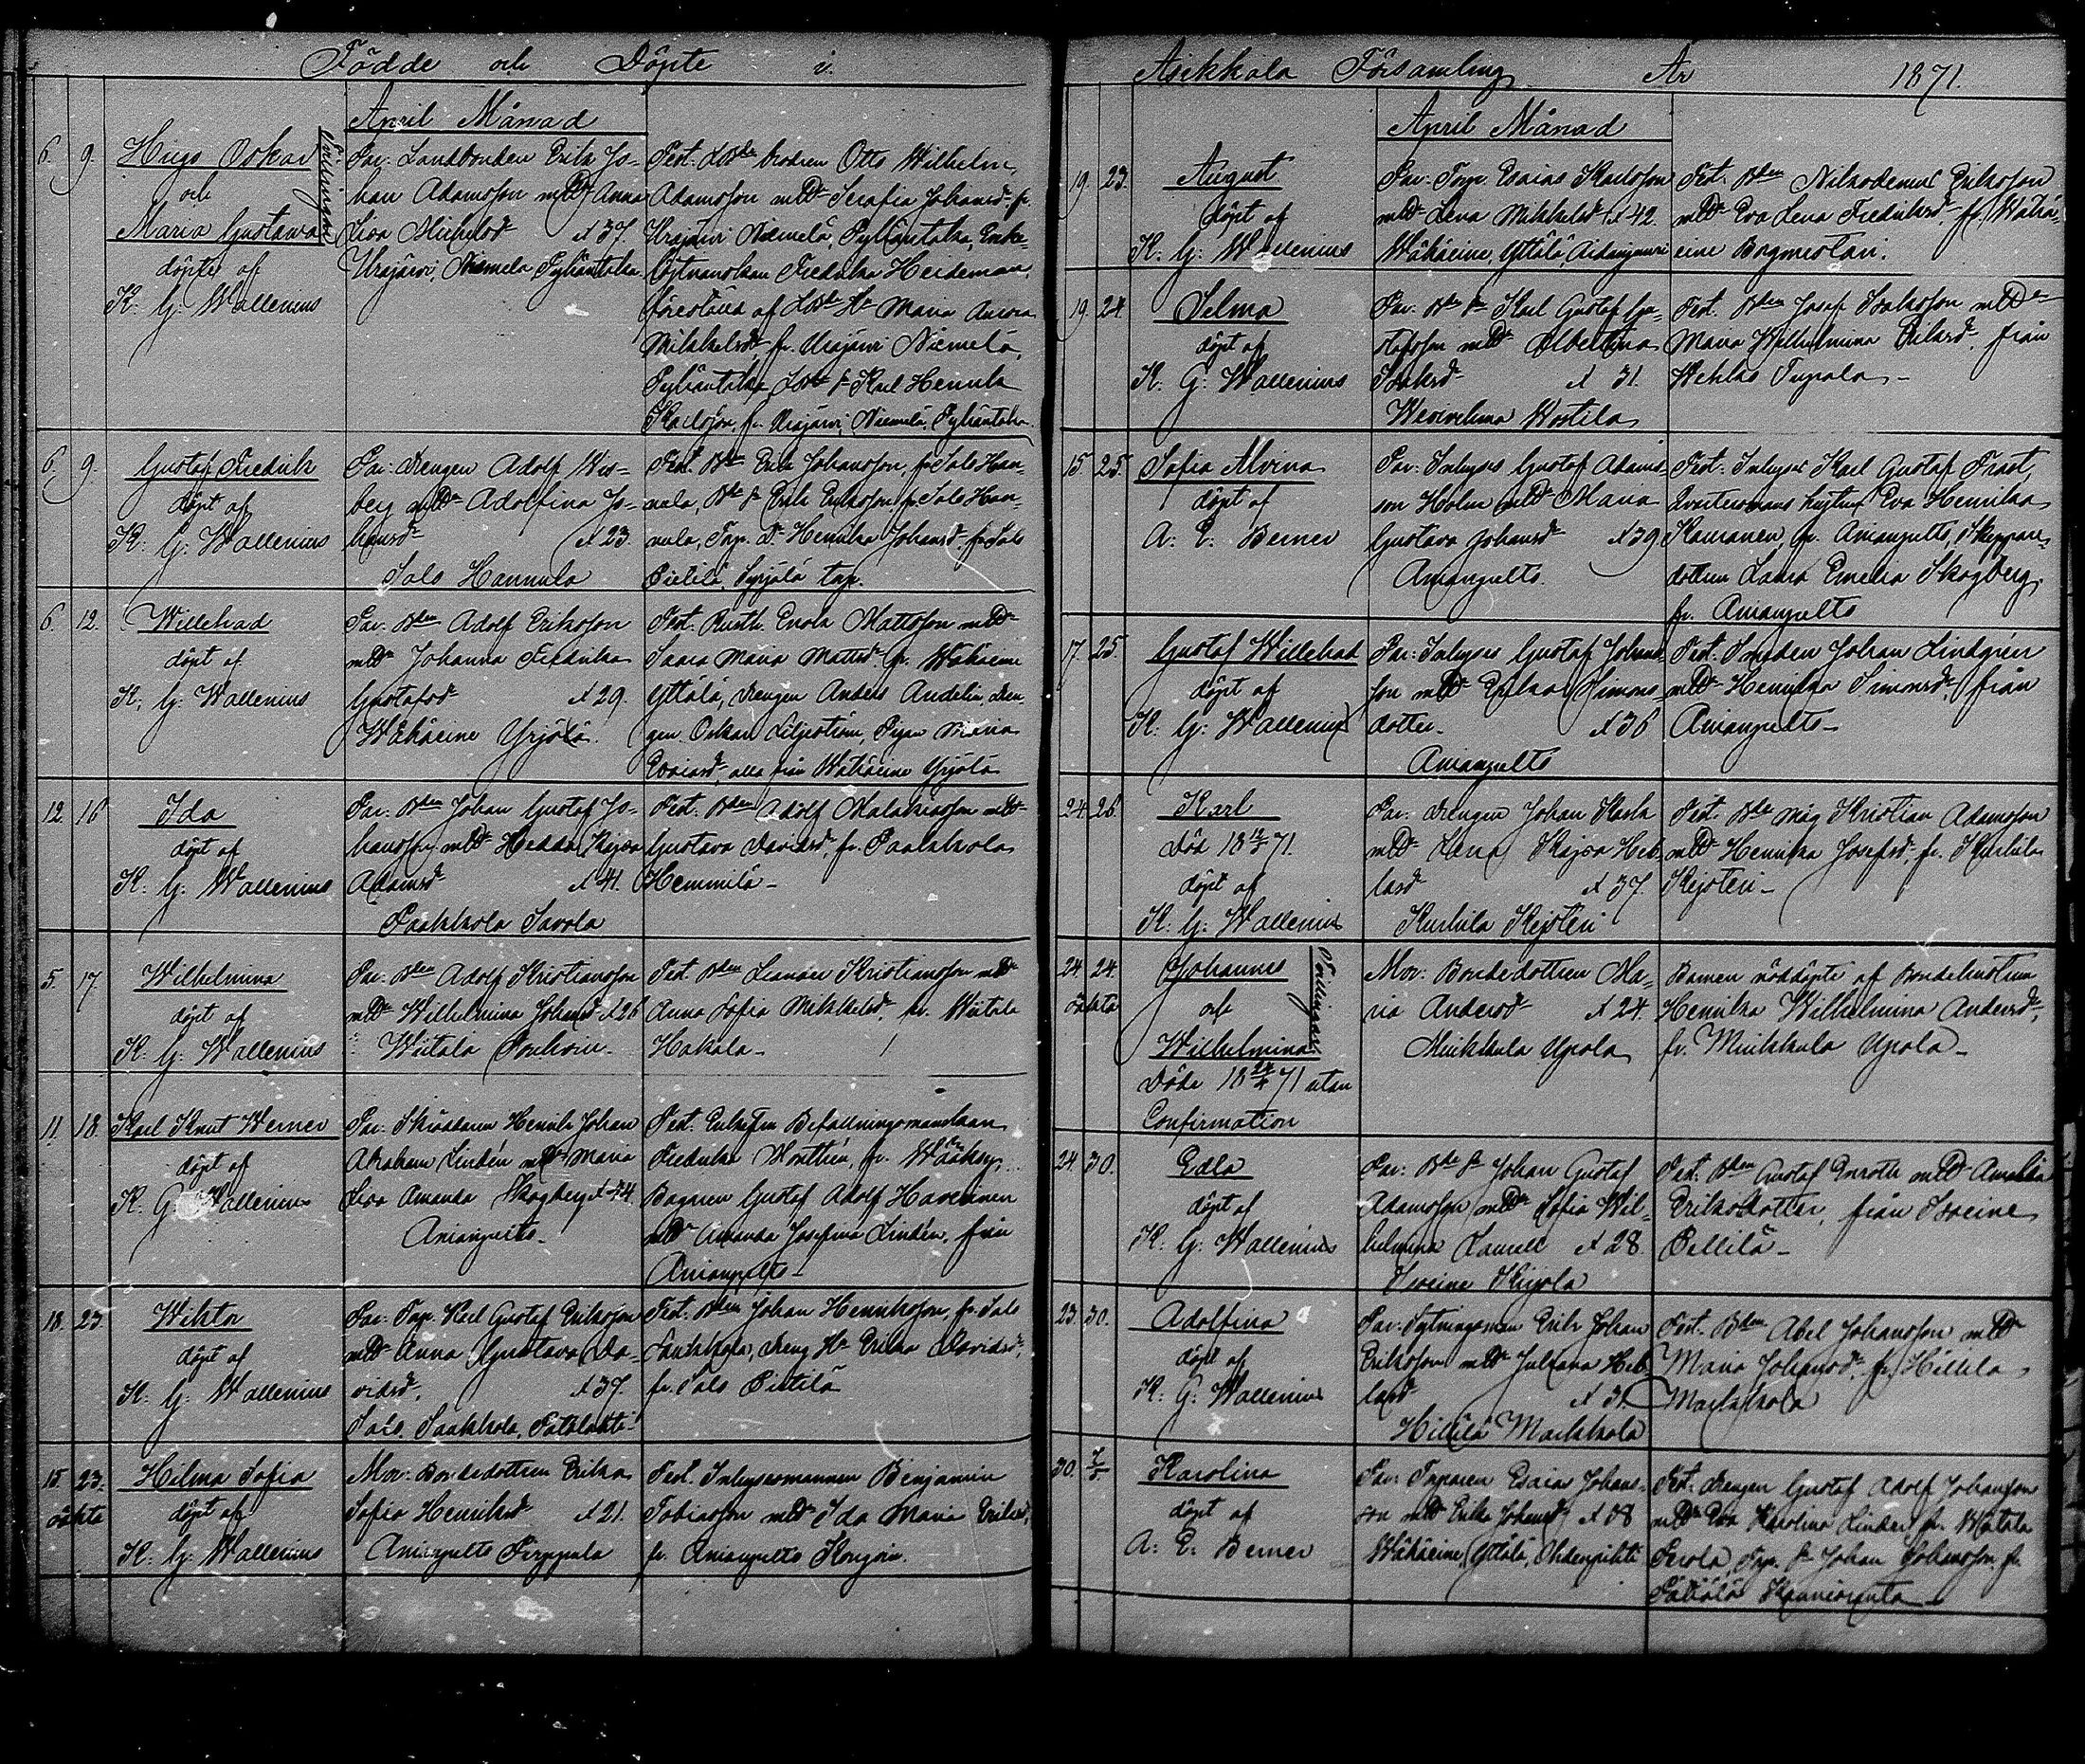 Födde och Döpte i
April Månad
6. 9. Hugo Oskar
och
Maria Gustava
Tvillingar
döpte af
K: G: Wallenius
Par: Landbonden Erik Jo-
han Adamsson mDr Anna
Lisa Michelsdr Å 37.
Urajärvi, Niemelä Pyhäntaka
Test. brodren Otto Wilhelm
Adamsson mDr Serafia Johansdr fr.
Urajärvi Niemelä, Pyhäntaka, Enke-
Fredrika Heideman,
af Maria Aurora
Mikkelsdr, fr. Urajärvi Niemelä,
Pyhäntaka, Karl Henrik
Karlsson, fr. Urajärvi, Niemelä, Pyhäntaka.
6. 9. Gustaf Fredrik
döpt af
K: G: Wallenius
Par: Drengen Adolf Wis-
berg mDr Adolfina Jo-
hansdr Å 23.
Salo Hannula
Test. Bden Erik Johansson, fr. Salo Han-
nula, Bde Sn Erik Eriksson fr. Salo Han-
nula, Torp. Dr Henrika Johansdr fr. Salo
Pietilä, Syrjälä torp.
6. 12. Willehad
döpt af
K: G: Wallenius
Par: Bden Adolf Eriksson
mDr Johanna Fredrika
Gustafsdr Å 29.
Wähäeine Yrjölä.
Test. Rusth. Enok Mattsson mDr
Saara Maria Mattsdr fr. Wähäeine
Yttälä, drengen Anders Andelin, dren-
gen Oskar Liljeström, Pigan Maria
Esaiasdr, alla från Wähäeine Yrjölä
12. 16 Ida
döpt af
K: G: Wallenius
Par: Bden Johan Gustaf Jo-
hansson mDr Hedda Kajsa
Adamsdr Å 41.
Paakkola Savola
Test. Bden Adolf Malakiasson mDr
Gustava Davidsdr, fr. Paakkola
Hemmilä -
5. 17. Wilhelmina
döpt af
K: G: Wallenius
Par: Bden Adolf Kristiansson
mDr Wilhelmina Johansdr Å 26
Wiitala
Test. Bden Leander Kristiansson mDr
Anna Sofia Mikkelsdr, fr. Wiitala
Hakala -
11. 18. Karl Knut Werner
döpt af
K: G: Wallenius
Par: Skräddaren Henrik Johan
Abraham Lindén mDr Maria
Lisa Amanda Skogberg Å 34.
Anianpelto -
Test. Enkefru Befallningsmanskan
Fredrika Monthén, fr. Wääksy,
Bagaren Gustaf Adolf Haveninen
mDr Amanda Josefina Lindén, från
Anianpelto -
18. 23 Wiktor
döpt af
K: G: Wallenius
Par: Torp. Karl Gustaf Eriksson
mDr Anna Gustava Da-
vidsdr, Å 37.
Salo, Saukkola,
Test. Bden Johan Henriksson, fr. Salo
Saukkola, dreng Hu Erika Davidsdr,
fr. Salo Pietilä
15. 23. Hilma Sofia
oäkta
döpt af
K: G: Wallenius
Mor: Bondedottren Erika
Sofia Henriksdr Å 21.
Anianpelto Pirppula
Test. Inhysesmannen Benjamin
Tobiasson mDr Ida Maria Eriksdr,
fr. Anianpelto
Asikkala Församling År 1871.
April Månad
19. 23. August
döpt af
K: G: Wallenius
Par: Torp. Esaias Karlsson
mDr Lena Mikkelsdr Å 42.
Wähäeine, Yttälä,
Test. Bden Nikodemus Eriksson
mDr Eva Lena Fredriksdr, fr. Wähä-
eine Borgmestari.
19. 24. Selma
döpt af
K: G: Wallenius
Par: Bde Sn Karl Gustaf Gu-
stafsson mDr Albertina
Isaksdr Å 31.
Wesivehma Wostila
Test. Bden Josef Isaksson mDr
Maria Wilhelmina Eriksdr, från
Wehkas Tupala -
15 25. Sofia Alvina
döpt af
A: E: Berner
Par: Inhyses Gustaf Adams-
son Holm mDr Maria
Gustava Johansdr Å 39
Anianpelto.
Test. Inhyses Karl Gustaf Frast,
hustru Eva Henrika
Kauranen, fr. Anianpelto, Skeppare-
dottren Laura Emelia Skogberg,
fr. Anianpelto
17. 25. Gustaf Willehad
döpt af
K: G: Wallenius
Par: Inhyses Gustaf Johans-
son mDr Erika Simons-
dotter. Å 36
Anianpelto
Test. Smeden Johan Lindgrén
mDr Henrika Simonsdr, från
Anianpelto -
24. 26. Karl
Död 18 71.
döpt af
K: G: Wallenius
Par: drengen Johan Karls
mDr Lena Kajsa Heik
lasdr Å 37.
Kurhila Kejsteri
Test. Bde Måg Kristian Adamsson
mDr Henrika Josefsdr, fr. Kurhila
Kejsteri -
24. 24. Johannes
oäkta
och
Wilhelmina
Tvillingar
Döde 18 24/4 71 utan
Confirmation
Mor: Bondedottren Ma-
ria Andersdr Å 24.
Muikkula Upola
Barnen nöddöpte af Bondehustrun
Henrika Wilhelmina Andersdr,
fr. Muikkula Upola -
24. 30. Edla
döpt af
K: G: Wallenius
Par: Bde Sn Johan Gustaf
Adamsson mDr Sofia Wil-
helmina Laurell Å 28.
Isoeine
Test. Bden Gustaf Enroth mDr Amalia
Eriksdotter, från Isoeine
Pellilä -
23. 30. Adolfina
döpt af
K: G: Wallenius
Par: Sytningsman Erik Johan
Eriksson mDr Juliana Heik
lasdr Å 31.
Hillilä Markkola
Test. Bden Abel Johansson mDr
Maria Johansdr, fr. Hillilä
Markkola
30. 7/5 Karolina
döpt af
A: E: Berner
Par: Torparen Esaias Johans-
son mDr Erika Johansdr Å 38
Wähäeine, Yttälä,
Test. drengen Gustaf Adolf Johansson
mDr Eva Karolina Linder, fr. Wiitala
Perola, Torp. Sn Johan Johansson, fr.